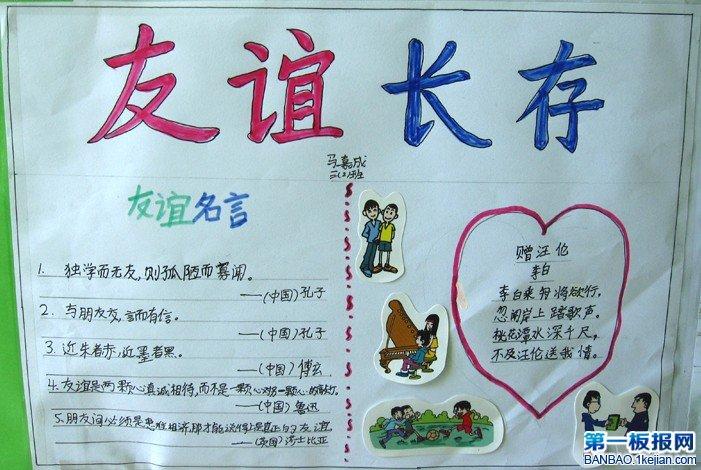 友谊长存
马嘉成
三(2)班
友谊名言
1. 独学而无友,则孤陋而寡闻。
——(中国)孔子
2. 与朋友交,言而有信。
——(中国)孔子
3. 近朱者赤,近墨者黑。
——(中国) 傅玄
4. 友谊是两颗心真诚相待,而不是一颗心对另一颗心的敲打。
——(中国)鲁迅
5. 朋友间必须是患难相济,那才能说得上是真正的友谊
——(英国)莎士比亚
赠汪伦
李白
李白乘舟将欲行,
忽闻岸上踏歌声。
桃花潭水深千尺,
不及汪伦送我情。
第一板报网
BANBAO.1kejian.com